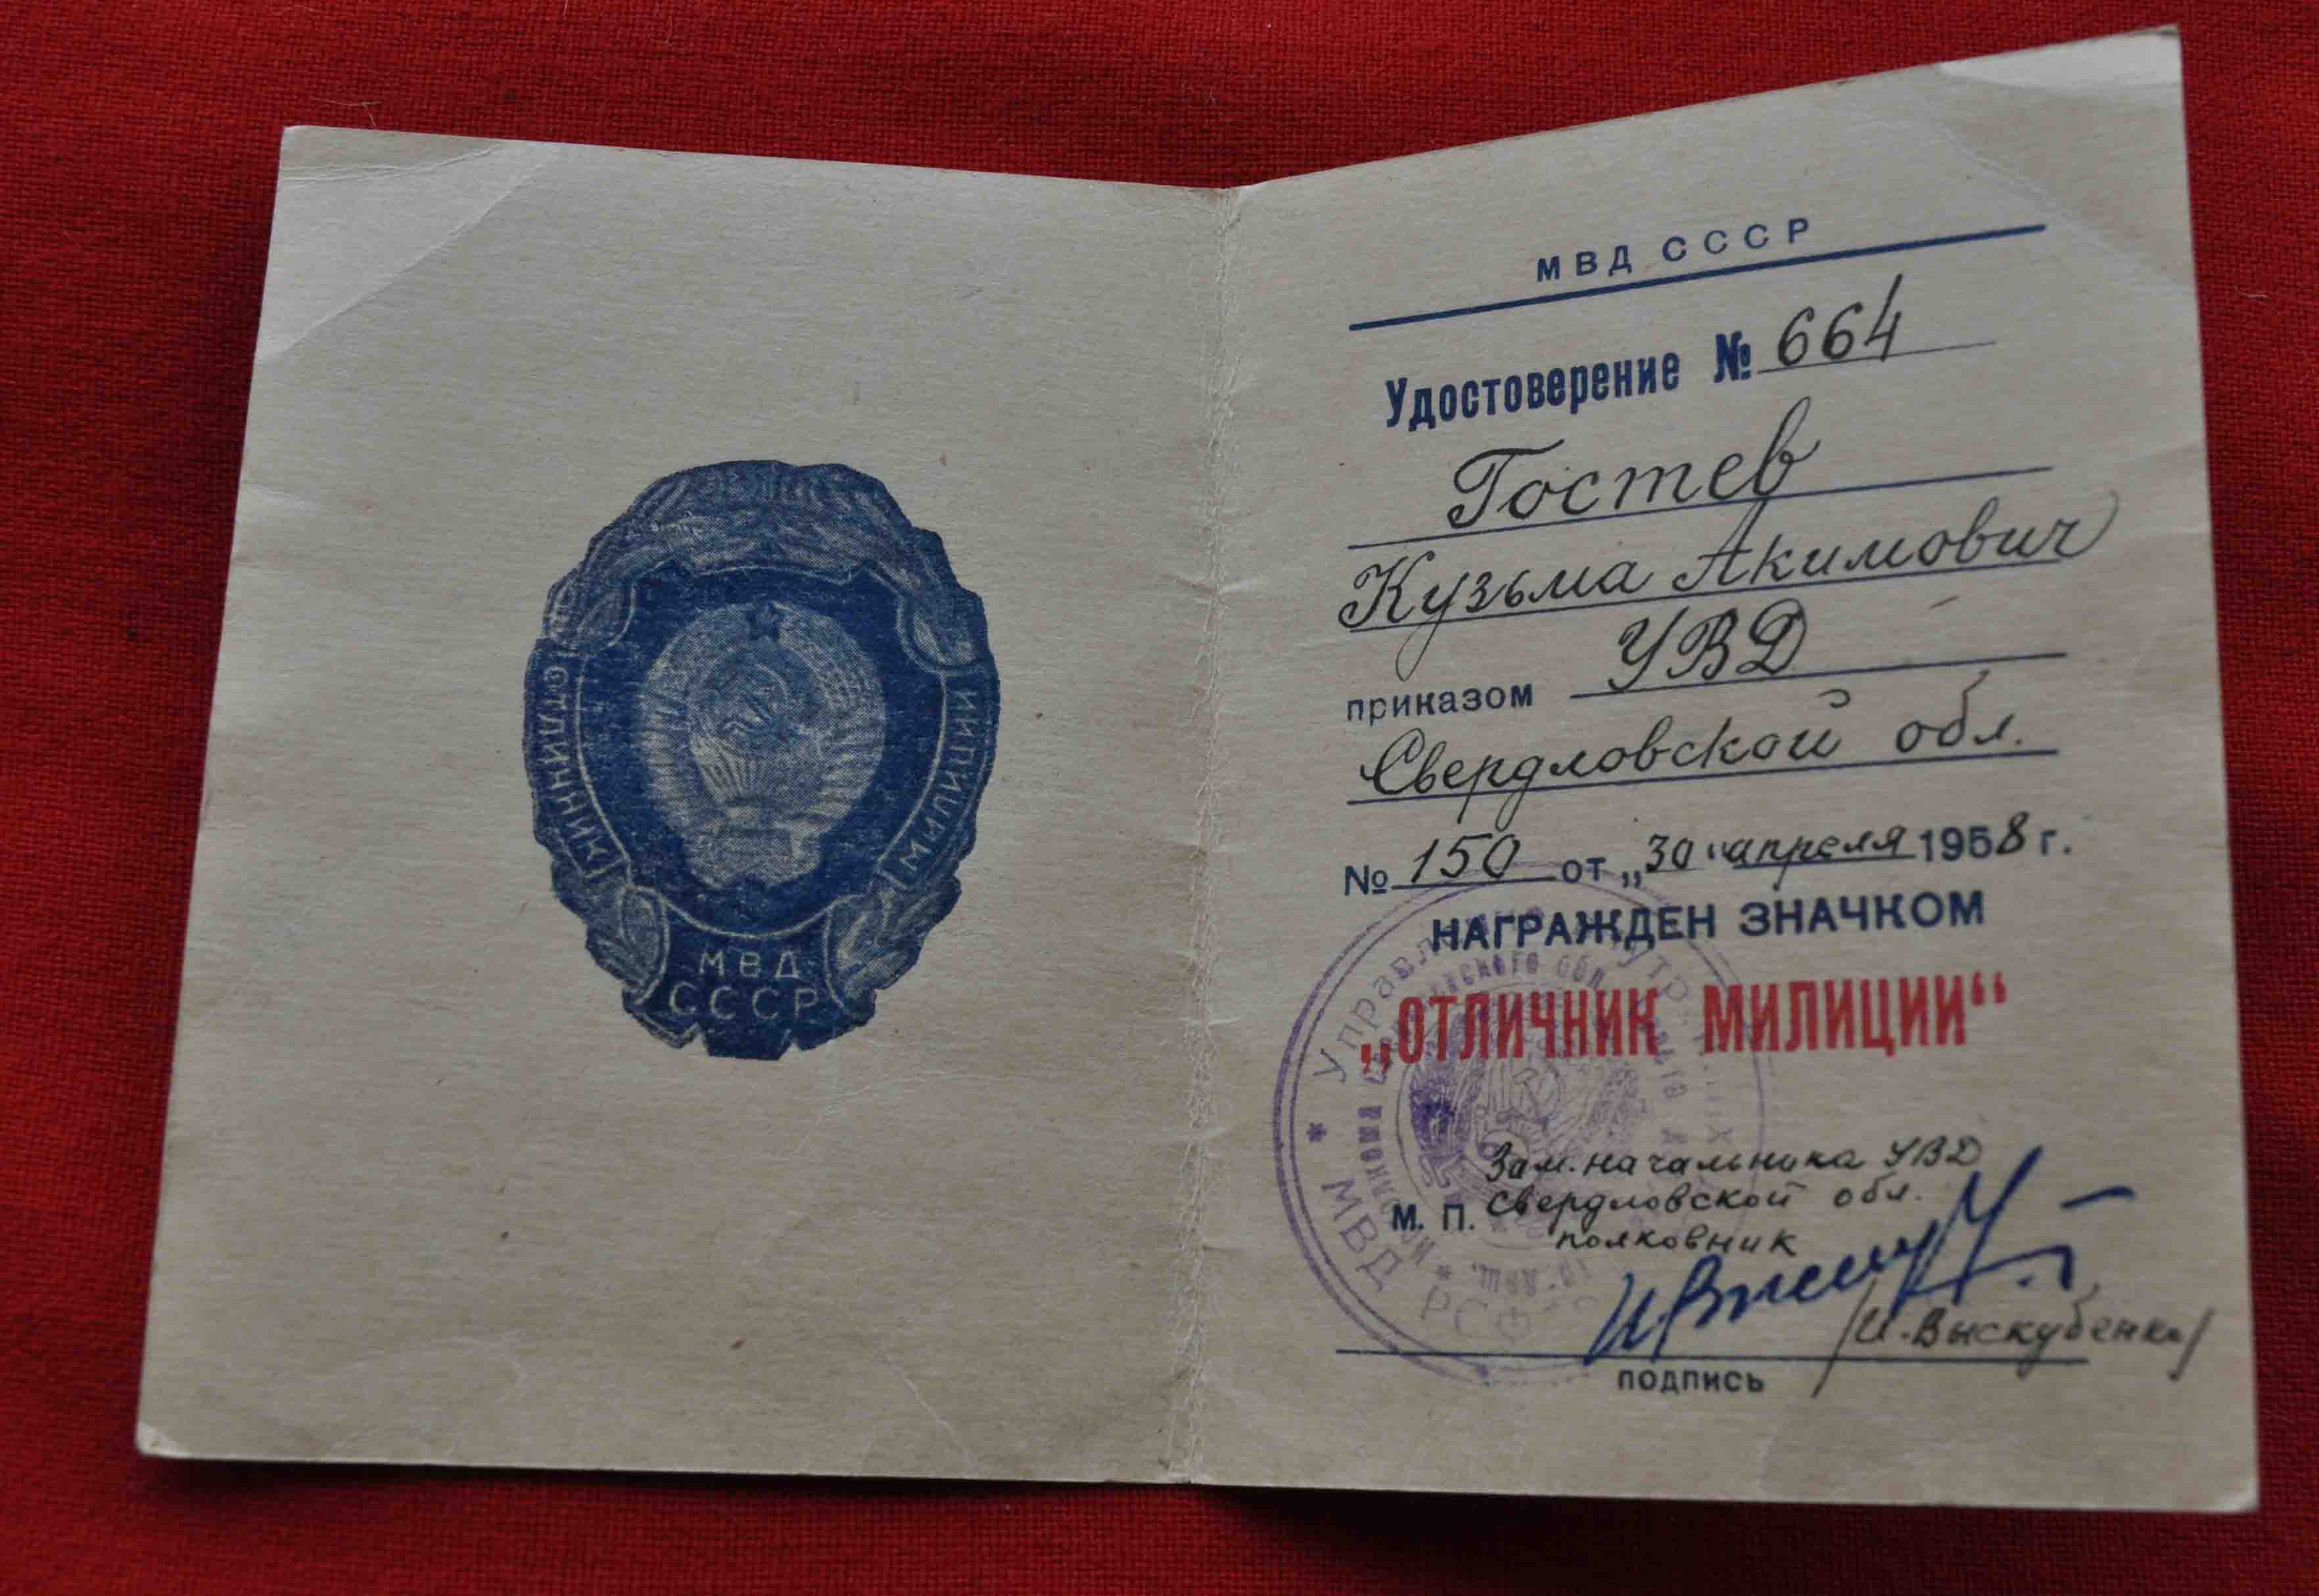 ОТЛИЧНИК
МИЛИЦИИ
МВД
СССР
МВД СССР
Удостоверение № 664
Гостев
Кузьма Акимович
приказом УВД
Свердловской обл.
№ 150 от „30“ апреля 1958 г.
НАГРАЖДЕН ЗНАЧКОМ
„ОТЛИЧНИК МИЛИЦИИ“
Зам. начальника УВД
М. П. Свердловской обл.
полковник
/И. Выскубенко/
подпись
* МВД РСФ